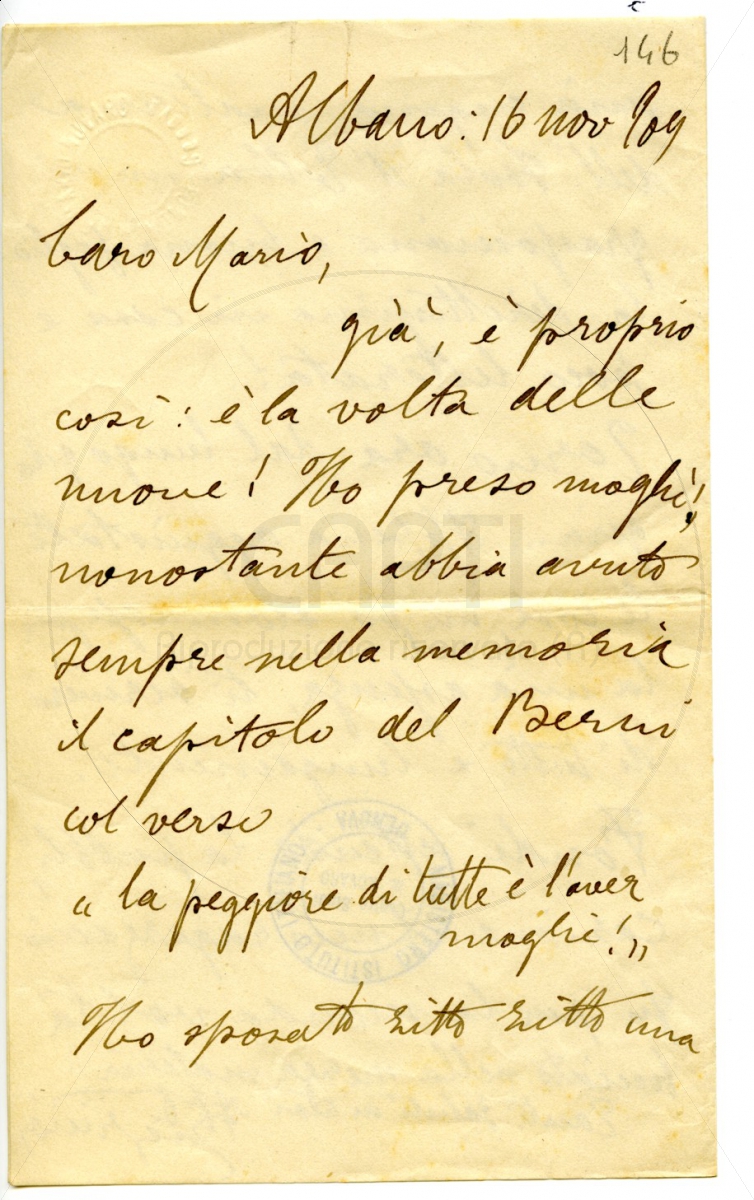 146
Albano: 16 nov 909
Caro Mario,
già, è proprio
così: è la volta delle
nuove! Ho preso moglie!,
nonostante abbia avuto
sempre nella memoria
il capitolo del Berni
col verso
„ la peggiore di tutte è l'aver
moglie! „
Ho sposato zitto zitto una